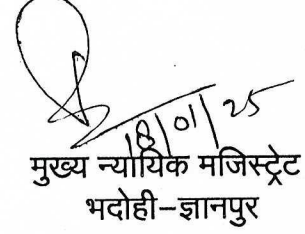 18/01/25
मुख्य न्यायिक मजिस्ट्रेट
भदोही-ज्ञानपुर